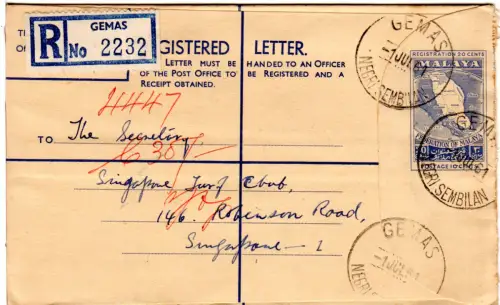 GEMAS
R No 2232
REGISTERED LETTER.
LETTER MUST BE HANDED TO AN OFFICER
OF THE POST OFFICE TO BE REGISTERED AND A
RECEIPT OBTAINED.
REGISTRATION 20 CENTS
MALAYA
FEDERATION OF MALAYA
POSTAGE 10 CENTS
GEMAS
-1 JUL 61
NEGRI SEMBILAN
GEMAS
61
NEGRI SEMBILAN
4447
TO The Secretary,
Singapore Turf Club,
146, Robinson Road,
Singapore - 1
GEMAS
-1 JUL 61
NEGRI SEMBILAN